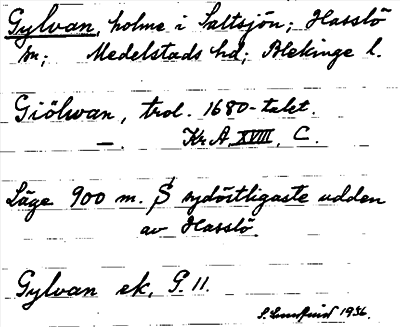 Gylvan, holme i Saltsjön; Hasslö
sn; Medelstads hd; Blekinge l.
Giölwan, trol. 1680-talet.
— Kr A, XVIII, C.
Läge 900 m. S sydöstligaste udden
av Hasslö.
Gylvan ek, G. 11.
1936.